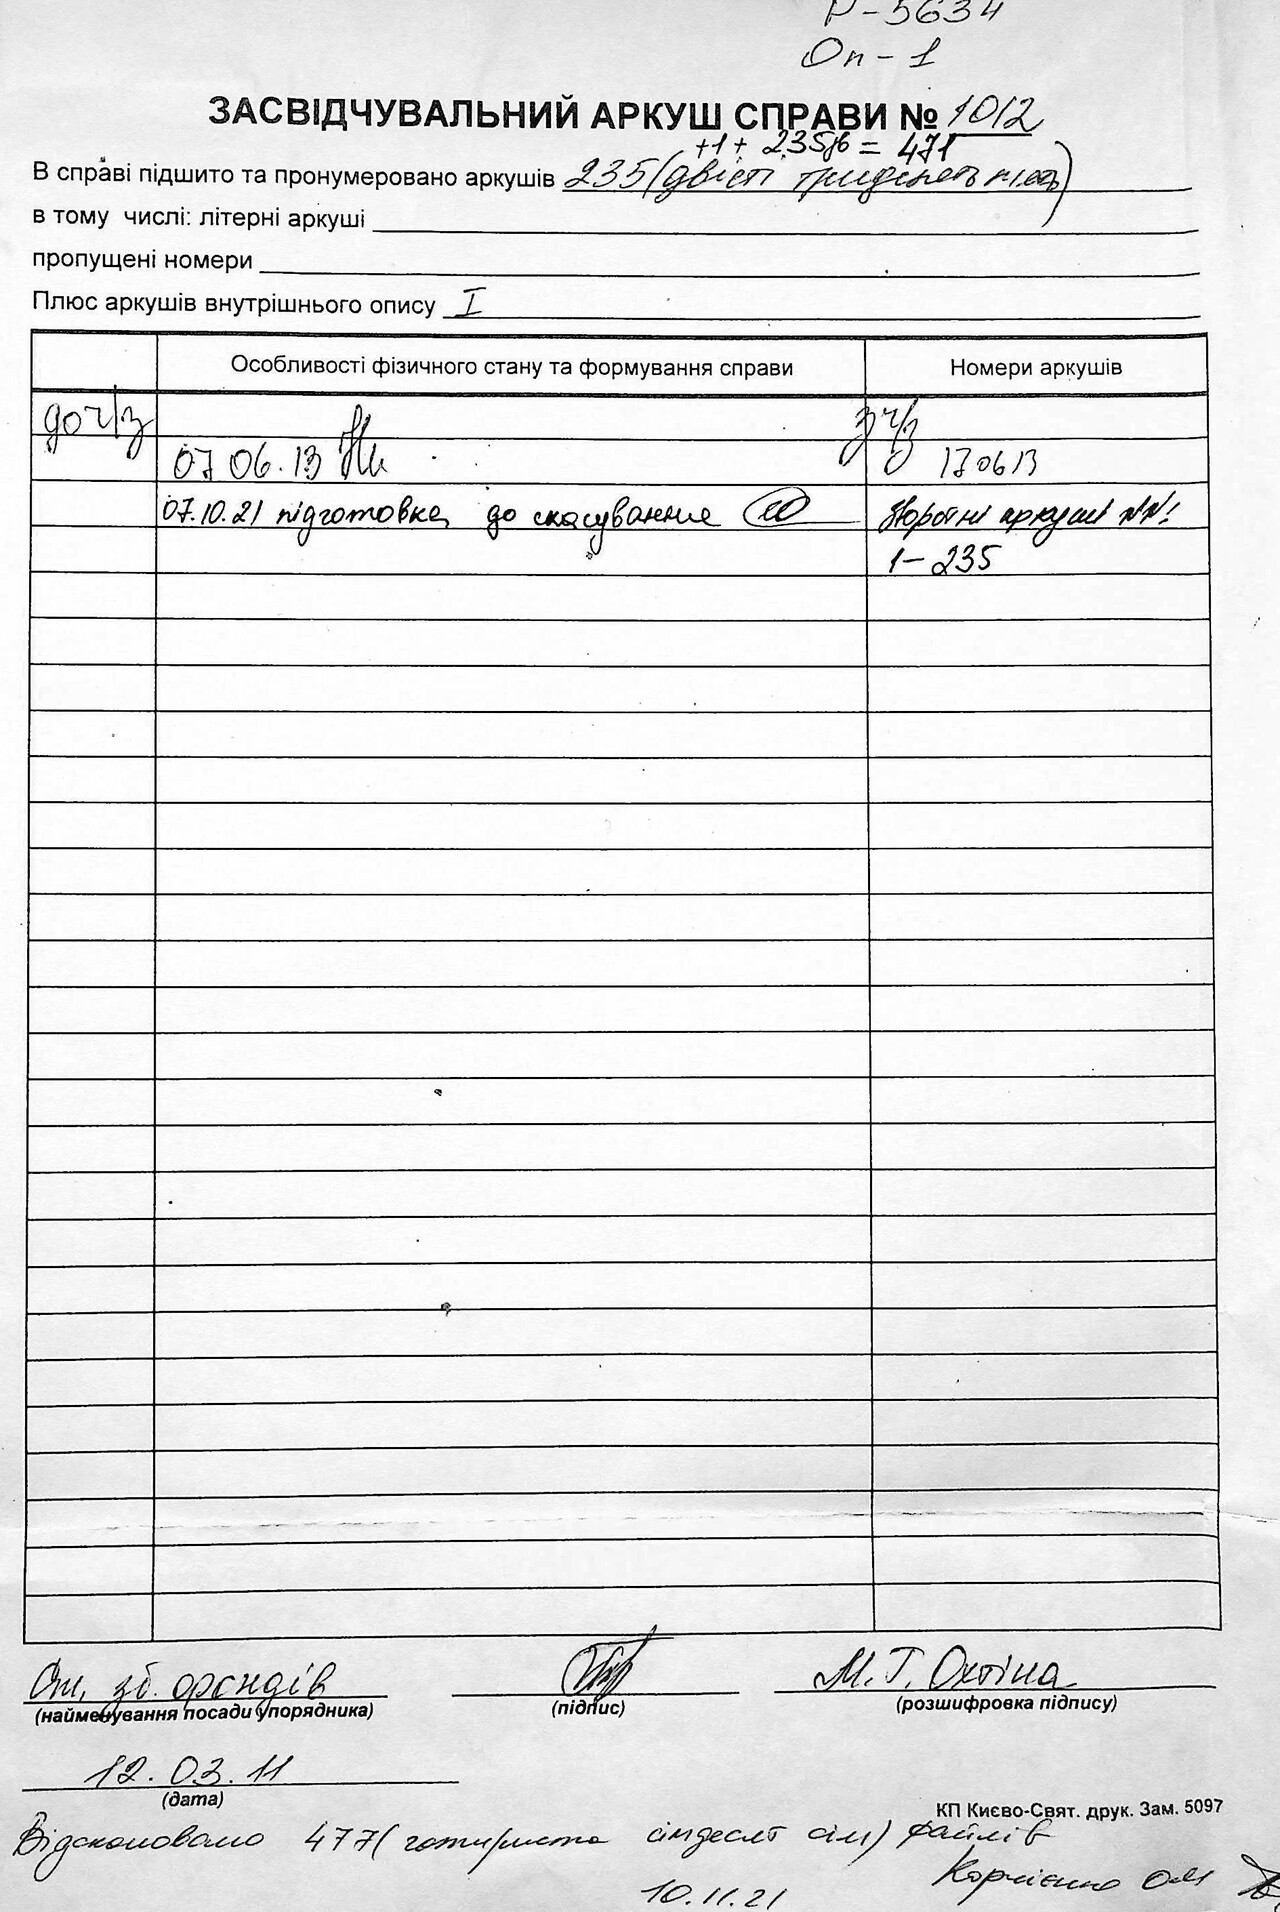 Р-5634
Оп-1
ЗАСВІДЧУВАЛЬНИЙ АРКУШ СПРАВИ № 1012
+1+ 235зв = 471
В справі підшито та пронумеровано аркушів 235 (двісті тридцять п'ять)
в тому числі: літерні аркуші
пропущені номери
Плюс аркушів внутрішнього опису I
Особливості фізичного стану та формування справи Номери аркушів
до ч/з з ч/з
07 06.13 170613
07.10.21 підготовка до сканування Зворотні аркуші №№:
1-235
зб. фондів М.Г. Охтіна
(найменування посади упорядника) (підпис) (розшифровка підпису)
12.03.11
(дата)
КП Києво-Свят. друк. Зам. 5097
Відскановано 477 (чотириста сімдесят сім) файлів
Корнієнко О.М
10.11.21